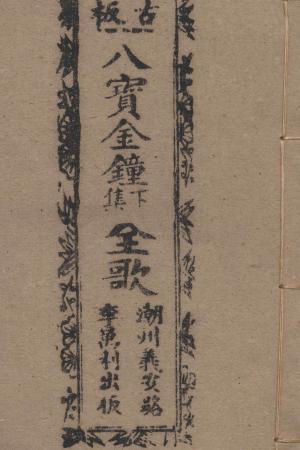 古板
八寶金鐘
下集
全歌
潮州義安路
李萬利出板